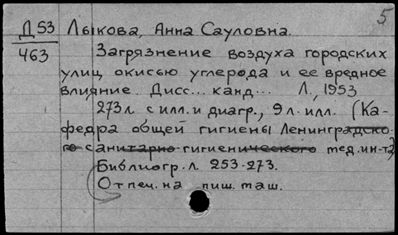 5
Д53 Лыкова, Анна Сауловна.
463 Загрязнение воздуха городских
улиц окисью углерода и ее вредное
влияние. Дисс... канд... Л., 1953
273 л. с илл. и диагр., 9 л. илл. (Ка-
федра общей гигиены Ленинградско-
го санитарно-гигиенического мед. ин-та)
Библиогр. л. 253-273.
Отпеч. на пиш. маш.